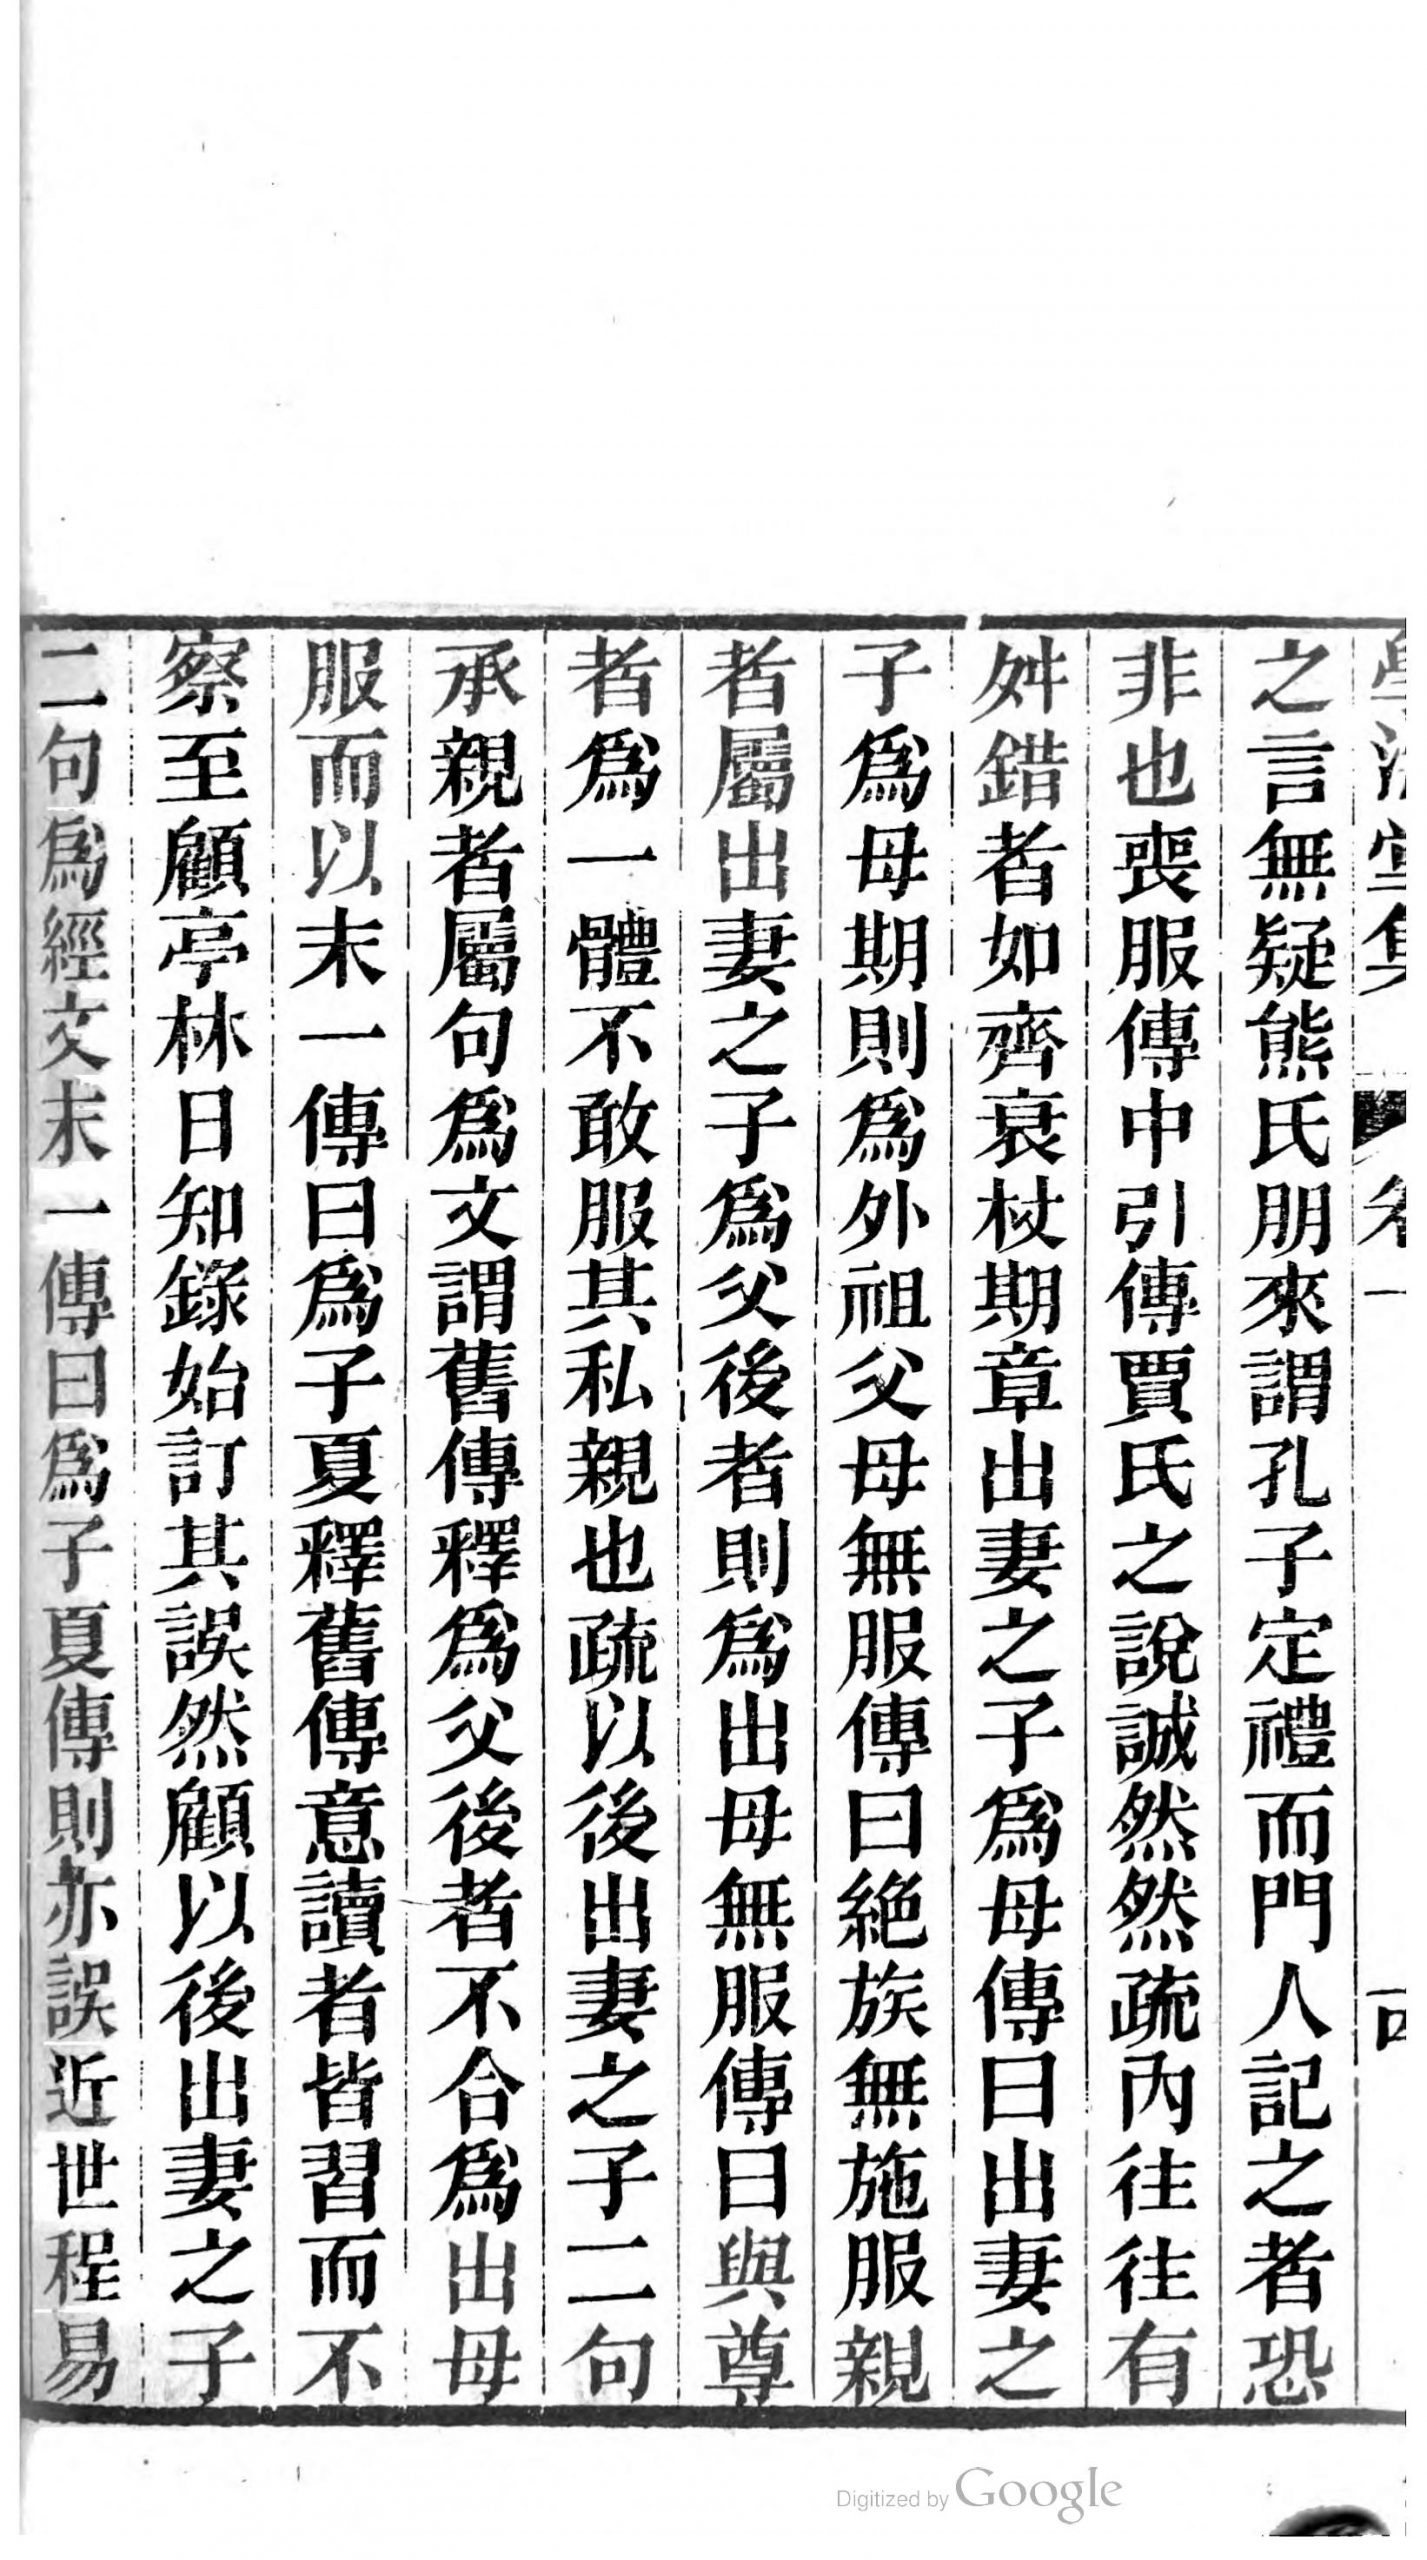 之言無疑熊氏朋來謂孔子定禮而門人記之者恐
非也喪服傳中引傳賈氏之說誠然然疏內往往有
舛錯者如齊衰杖期章出妻之子爲母傳曰出妻之
子爲母期則爲外祖父母無服傳曰絕族無施服親
者屬出妻之子爲父後者則爲出母無服傳曰與尊
者爲一體不敢服其私親也疏以後出妻之子二句
承親者屬句爲文謂舊傳釋爲父後者不合爲出母
服而以末一傳曰爲子夏釋舊傳意讀者皆習而不
察至顧亭林日知錄始訂其誤然顧以後出妻之子
二句爲經文末一傳曰爲子夏傳則亦誤近世程易
Digitized by Google